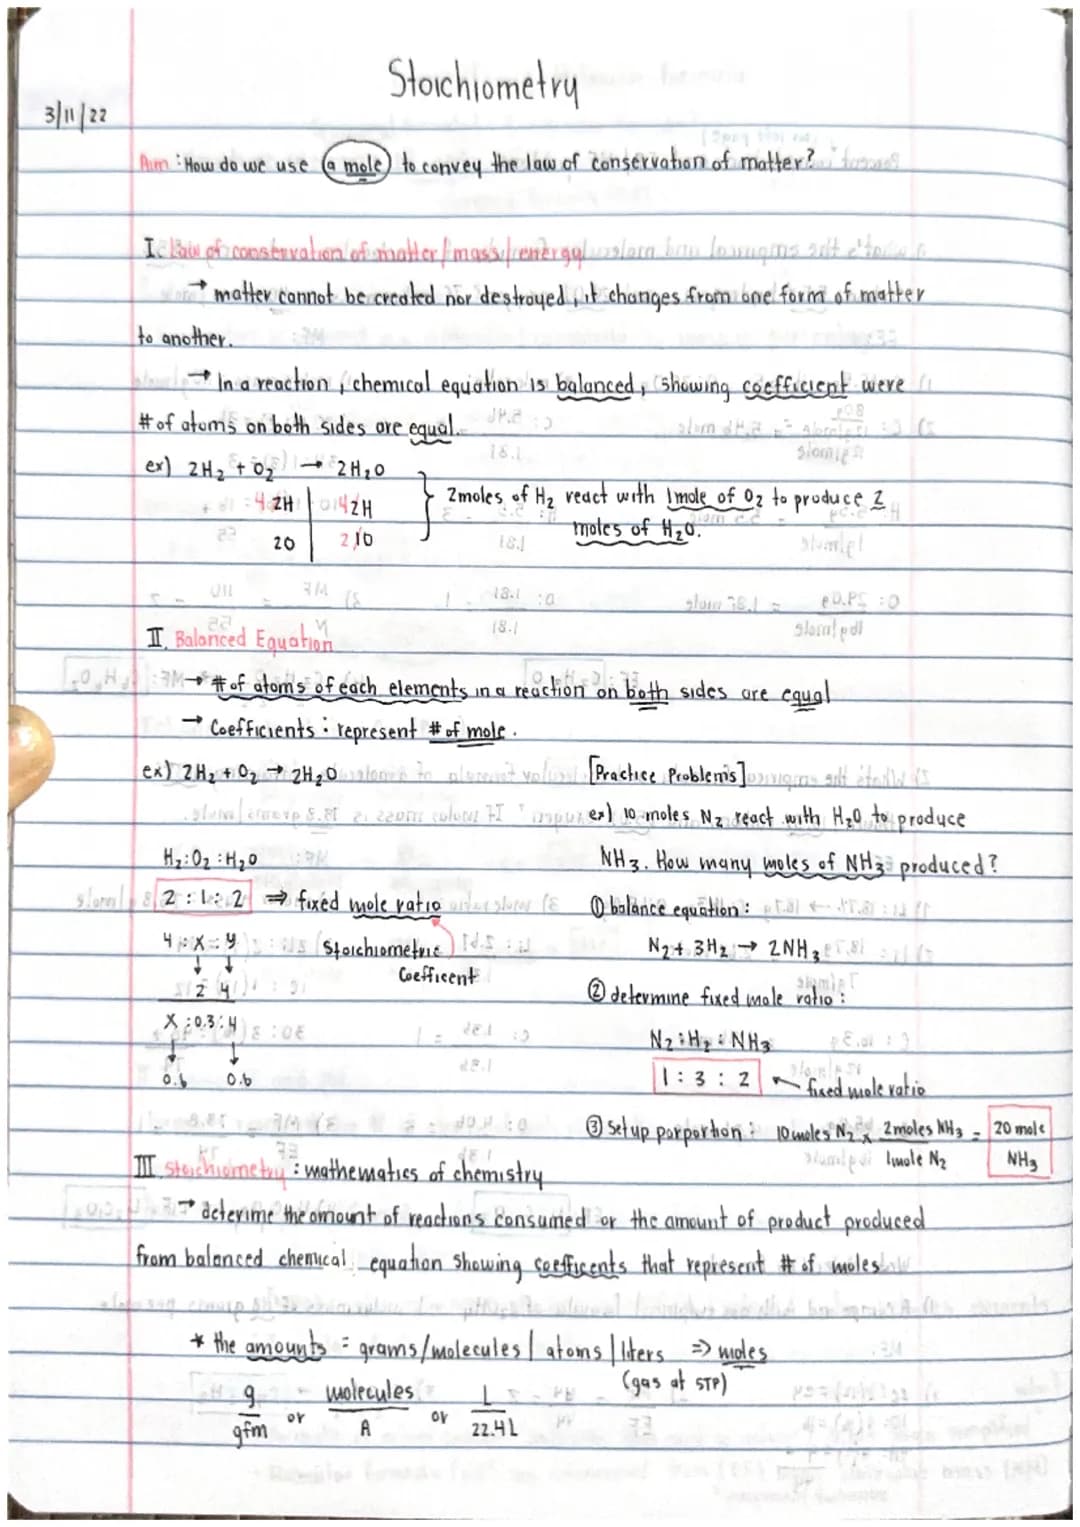 Stoichiometry
3/11/22
Aim : How do we use (a mole) to convey the law of conservation of matter?
I. Law of conservation of matter/mass/energy
→ matter cannot be created nor destroyed, it changes from one form of matter
to another.
→ In a reaction, chemical equation is balanced, showing coefficient were
# of atoms on both sides are equal.
ex) 2H₂ + O₂ → 2H₂O
4 2H | 4 2H
2O | 2 1O
} 2moles of H₂ react with 1mole of O₂ to produce 2
moles of H₂O.
II. Balanced Equation
→ # of atoms of each elements in a reaction on both sides are equal
→ Coefficients : represent # of mole.
ex) 2H₂ + O₂ → 2H₂O
H₂ : O₂ : H₂O
2 : 1 : 2 ⇒ fixed mole ratio
4 : X : y (Stoichiometric
Coefficent)
↓ ↓
2 4
X : 0.3 : y
↓ ↓
0.6 0.6
[Practice Problems]
ex) 10 moles N₂ react with H₂O to produce
NH₃. How many moles of NH₃ produced?
① balance equation :
N₂ + 3H₂ → 2NH₃
② determine fixed mole ratio :
N₂ : H₂ : NH₃
1 : 3 : 2 ← fixed mole ratio
③ Set up porportion : 10 moles N₂ x 2moles NH₃ / 1mole N₂ = 20 mole NH₃
III. Stoichiometry : mathematics of chemistry
→ deterime the amount of reactions consumed or the amount of product produced
from balanced chemical equation showing coefficents that represent # of moles
* the amounts = grams/molecules/atoms/liters ⇒ moles
(gas at STP)
g/gfm or molecules/A or L/22.4L